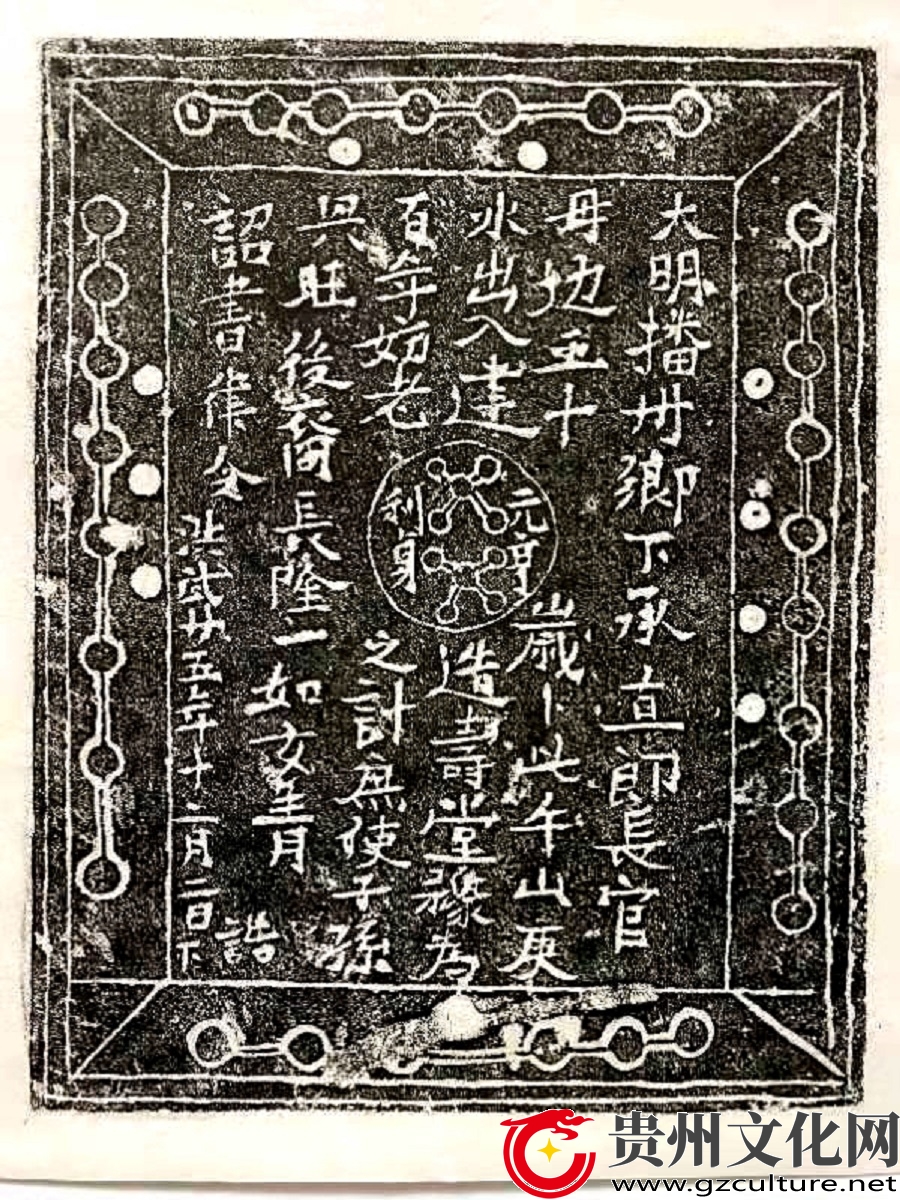 大明播州鄉下承直郎長官
母地五十歲卜此午山庚
水出入建造壽堂豫為
百年防老之計庶使子孫
興旺後裔長隆一如女青
詔書律令
誥
洪武廿五年十二月二日下
元亨
利貞
贵州文化网
www.gzculture.net